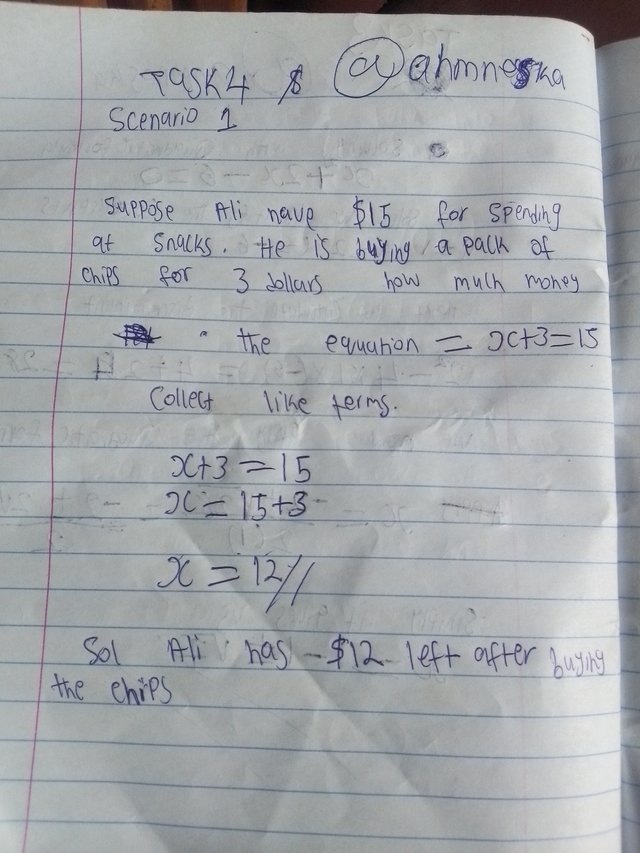 Task 4 $ @ahmneska
Scenario 1
Suppose Ali have $15 for spending
at snacks. He is buying a pack of
chips for 3 dollars how much money
the equation = x+3=15
Collect like terms.
x+3=15
x=15+3
x=12//
Sol Ali has $12 left after buying
the chips